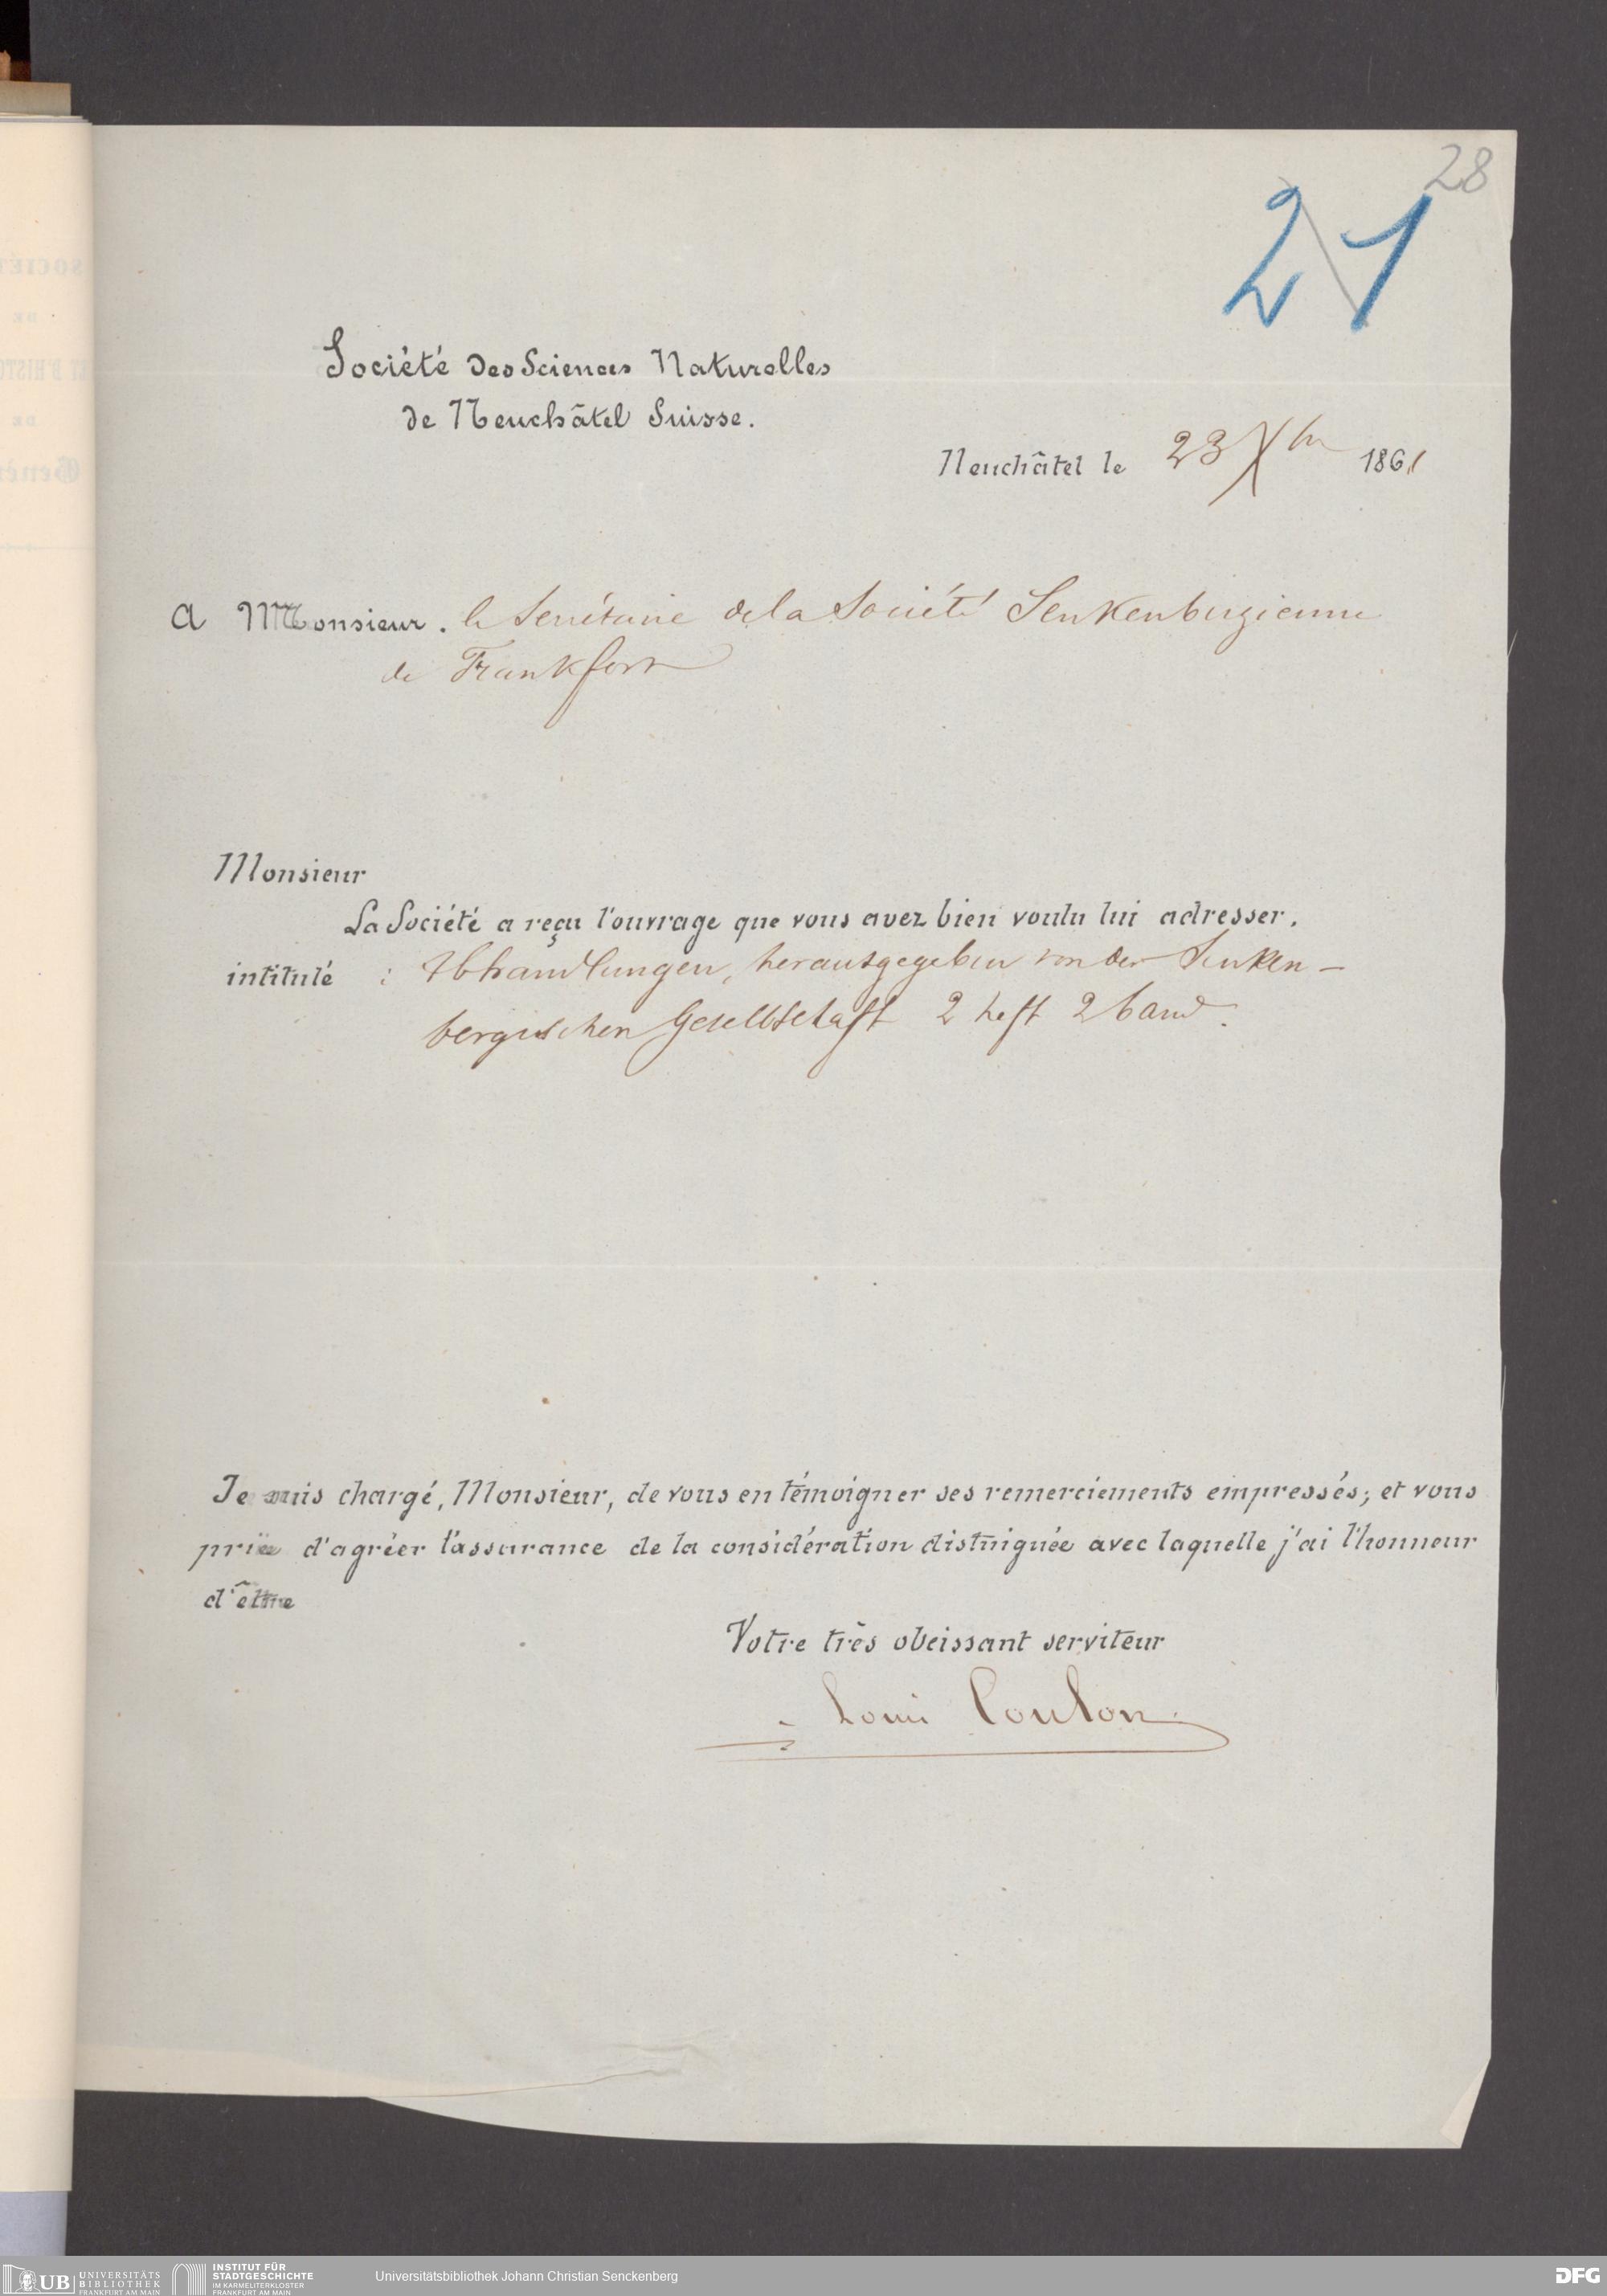 28
21
Société des Sciences Naturelles
de Neuchâtel Suisse.
Neuchâtel le 23 Xbr 1861
A Monsieur. le Secrétaire de la Société Senkenbergienne
de Frankfort
Monsieur
La Société a reçu l'ouvrage que vous avez bien voulu lui adresser.
intitulé : Abhandlungen, herausgegeben von der Senken-
bergischen Gesellschaft 2 heft 2 band.
Je suis chargé, Monsieur, de vous en témoigner ses remerciements empressés; et vous
prie d'agréer l'assurance de la considération distinguée avec laquelle j'ai l'honneur
d'être
Votre très obeissant serviteur
Louis Coulon
UB UNIVERSITÄTS
BIBLIOTHEK
FRANKFURT AM MAIN
INSTITUT FÜR
STADTGESCHICHTE
IM KARMELITERKLOSTER
FRANKFURT AM MAIN
Universitätsbibliothek Johann Christian Senckenberg
DFG